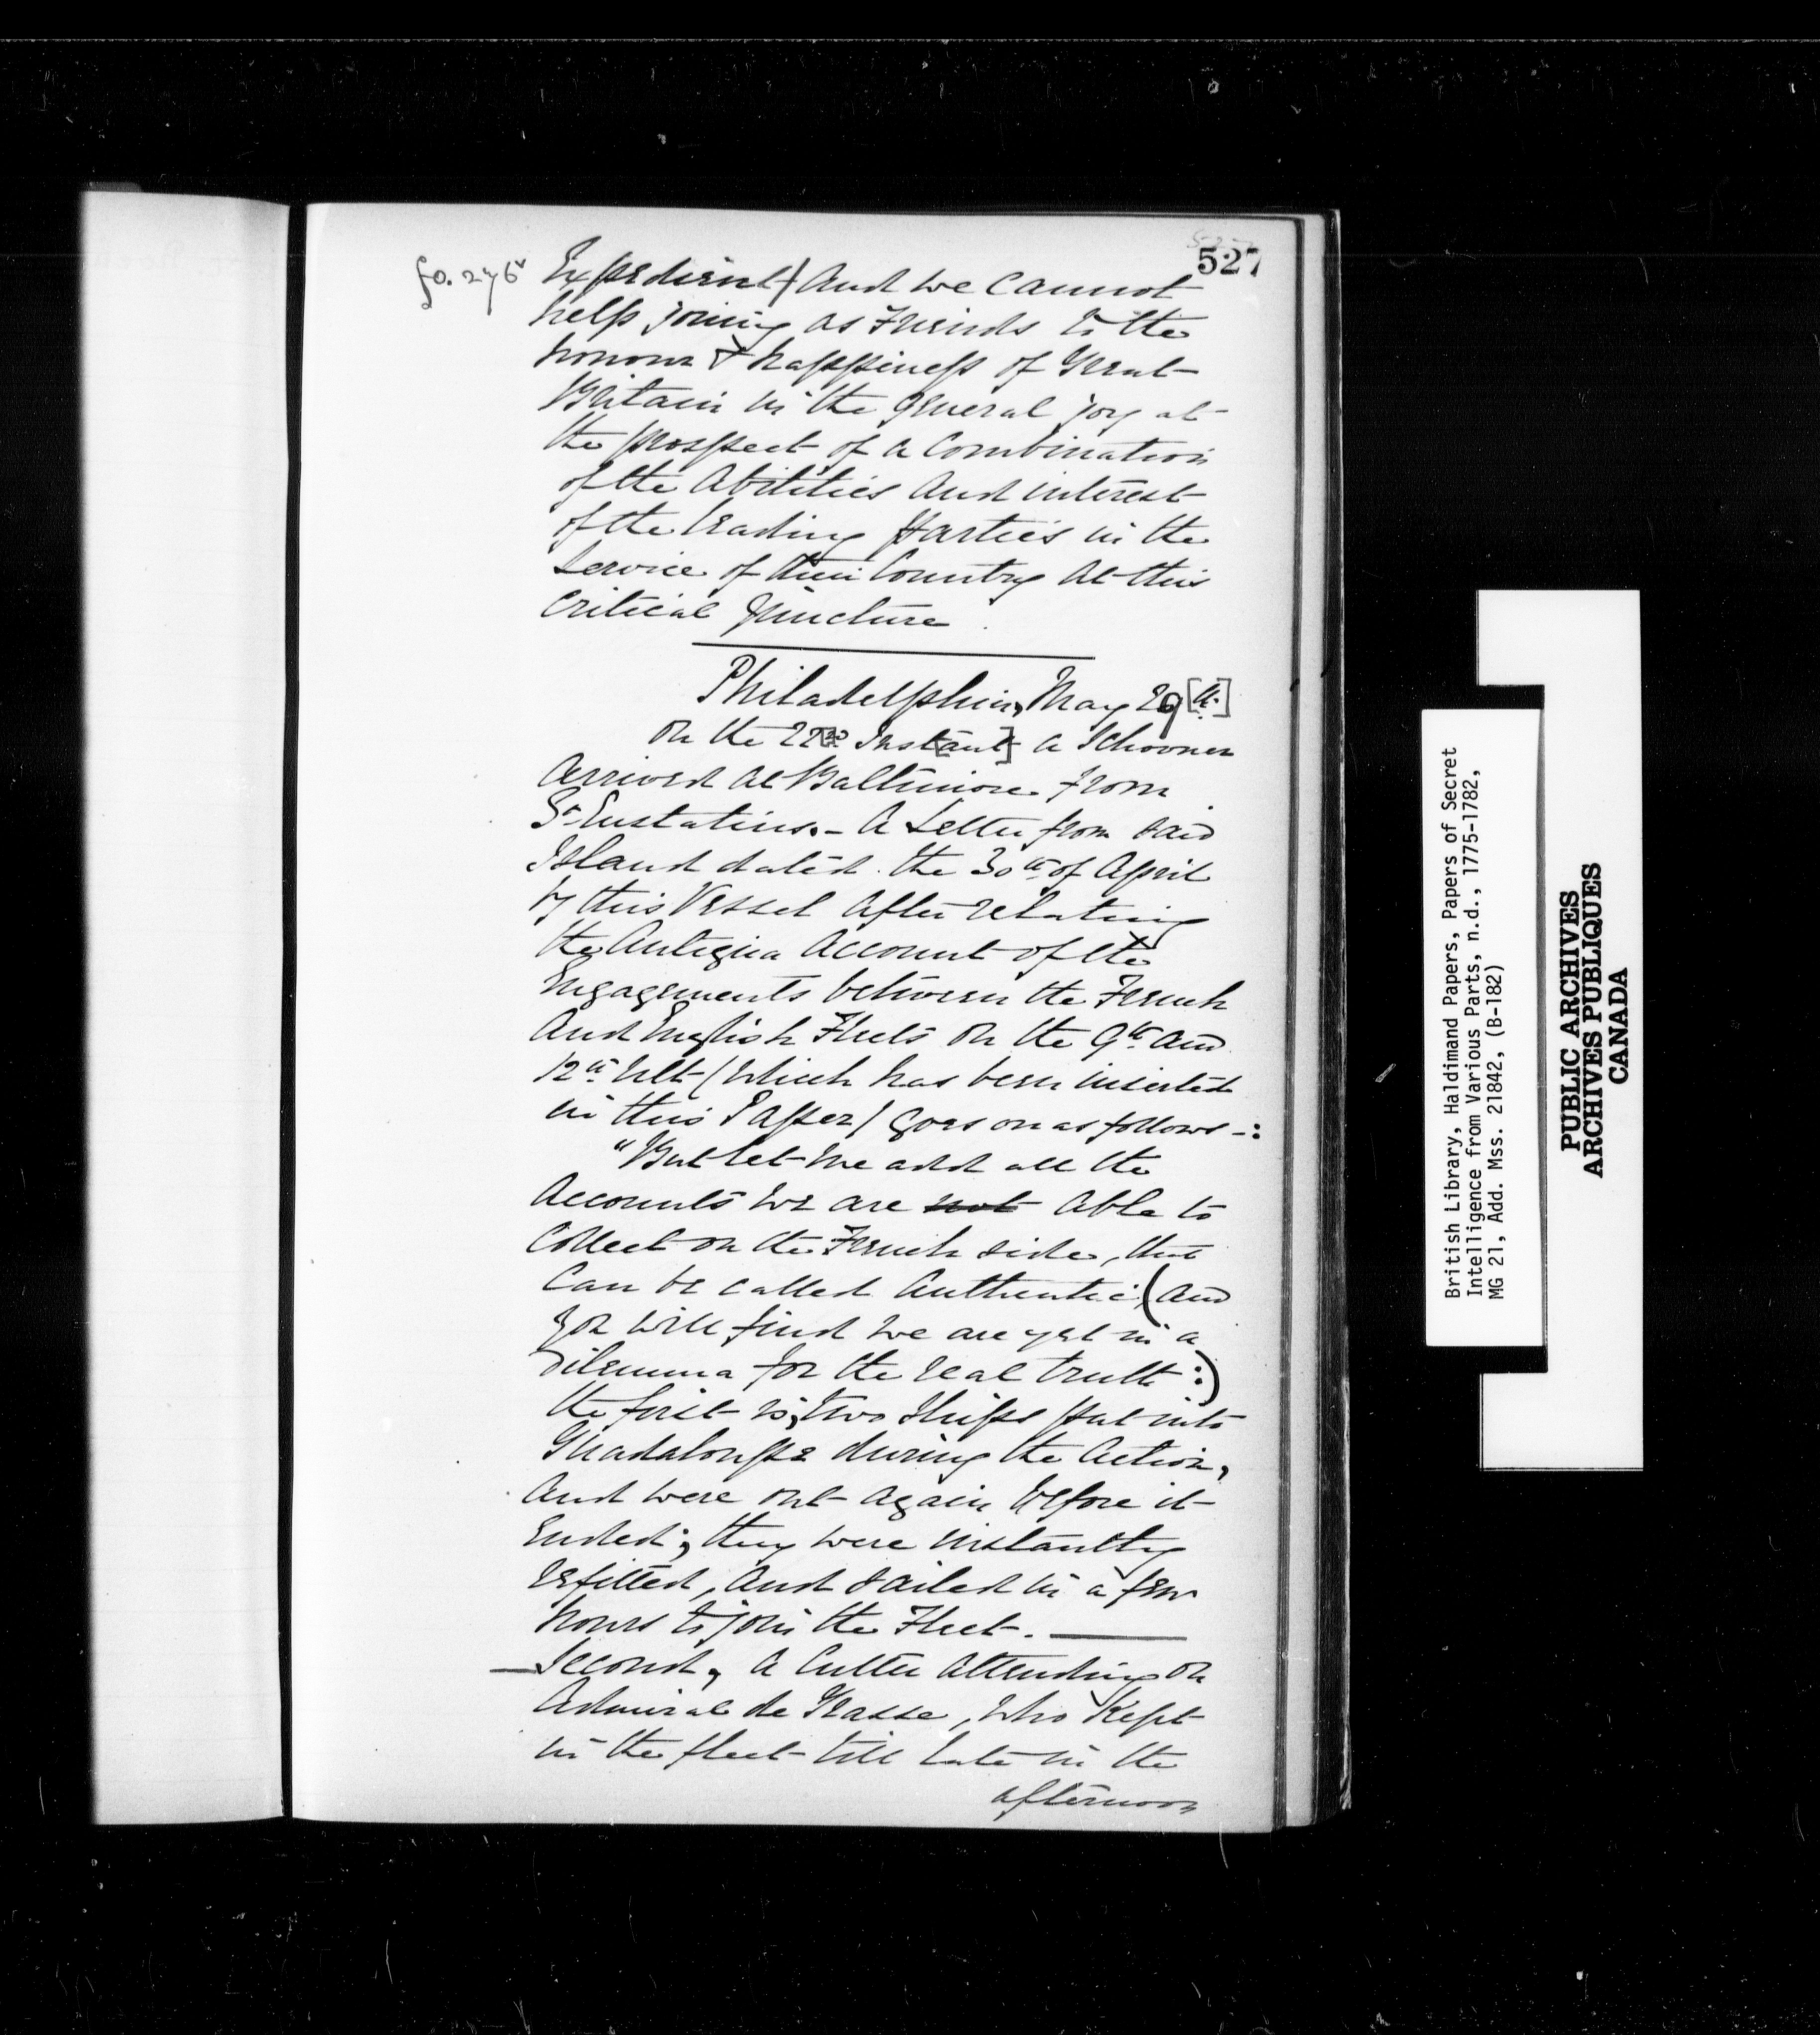 527
fo. 276v
Expedient) And we Cannot
help joining as Friends to the
honour & happiness of Great
Britain in the general joy at
the prospect of a Combination
of the Abilities And interest
of the leading Parties in the
Service of their Country At this
Critical Juncture.
Philadelphia, May 29[th]
On the 22nd Inst[ant] a Schooner
Arrived At Baltimore from
St Eustatius. - A Letter from said
Island dated the 30th of April
by this Vessel After relating
the Antigua Account of the
Engagements between the French
And English Fleets On the 9th And
12th Ult (Which has been inserted
in this Paper) goes on as follows -:
"But let me add all the
Accounts we are not able to
Collect on the French side, that
Can be called Authentic (And
you will find we are yet in a
dilemma for the real truth :)
the first is, two Ships put into
Guadaloupe during the Action,
And were out again before it
Ended; they were instantly
refitted, And sailed in a few
hours to join the Fleet. —
— Second, A Cutter Attending on
Admiral de Grasse, who Kept
in the fleet till late in the
afternoon
British Library, Haldimand Papers, Papers of Secret
Intelligence from Various Parts, n.d., 1775-1782,
MG 21, Add. Mss. 21842, (B-182)
PUBLIC ARCHIVES
ARCHIVES PUBLIQUES
CANADA